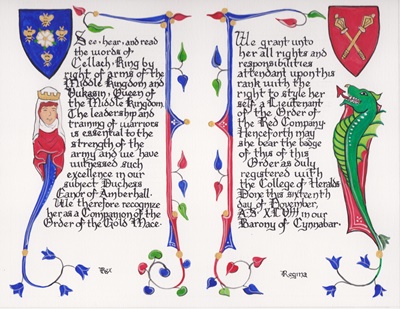 See, hear, and read
the words of
Cellach, King by
right of arms of the
Middle Kingdom and
Vukasin, Queen of
the Middle Kingdom.
The leadership and
training of warriors
is essential to the
strength of the
army and we have
witnessed such
excellence in our
subject Duchess
Eanor of Amberhall.
We therefore recognize
her as a Companion of the
Order of the Gold Mace.
Rex
We grant unto
her all rights and
responsibilities
attendant upon this
rank with the
right to style her
self a Lieutenant
of the Order of
the Red Company.
Henceforth may
she bear the badge
of this of this
Order as duly
registered with
the College of Heralds
Done this sixteenth
day of November,
A.S. XLVIII in our
Barony of Cynnabar.
Regina